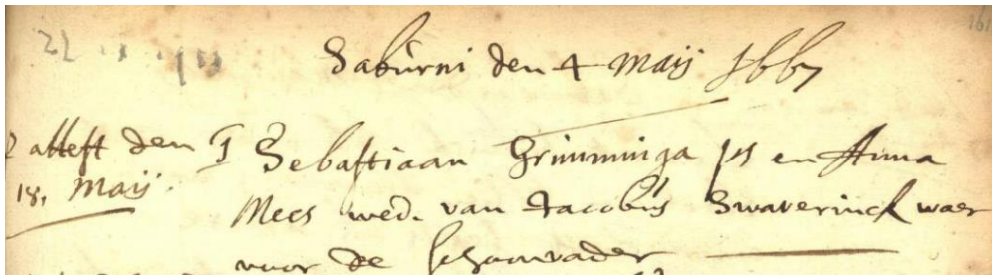 Saturni den 4 Maij 1667
attest den
18. Maij.
Sebastiaan Grimminga js en Anna
Mees wed. van Jacobus Swaverinck waer
voor de schoonvader